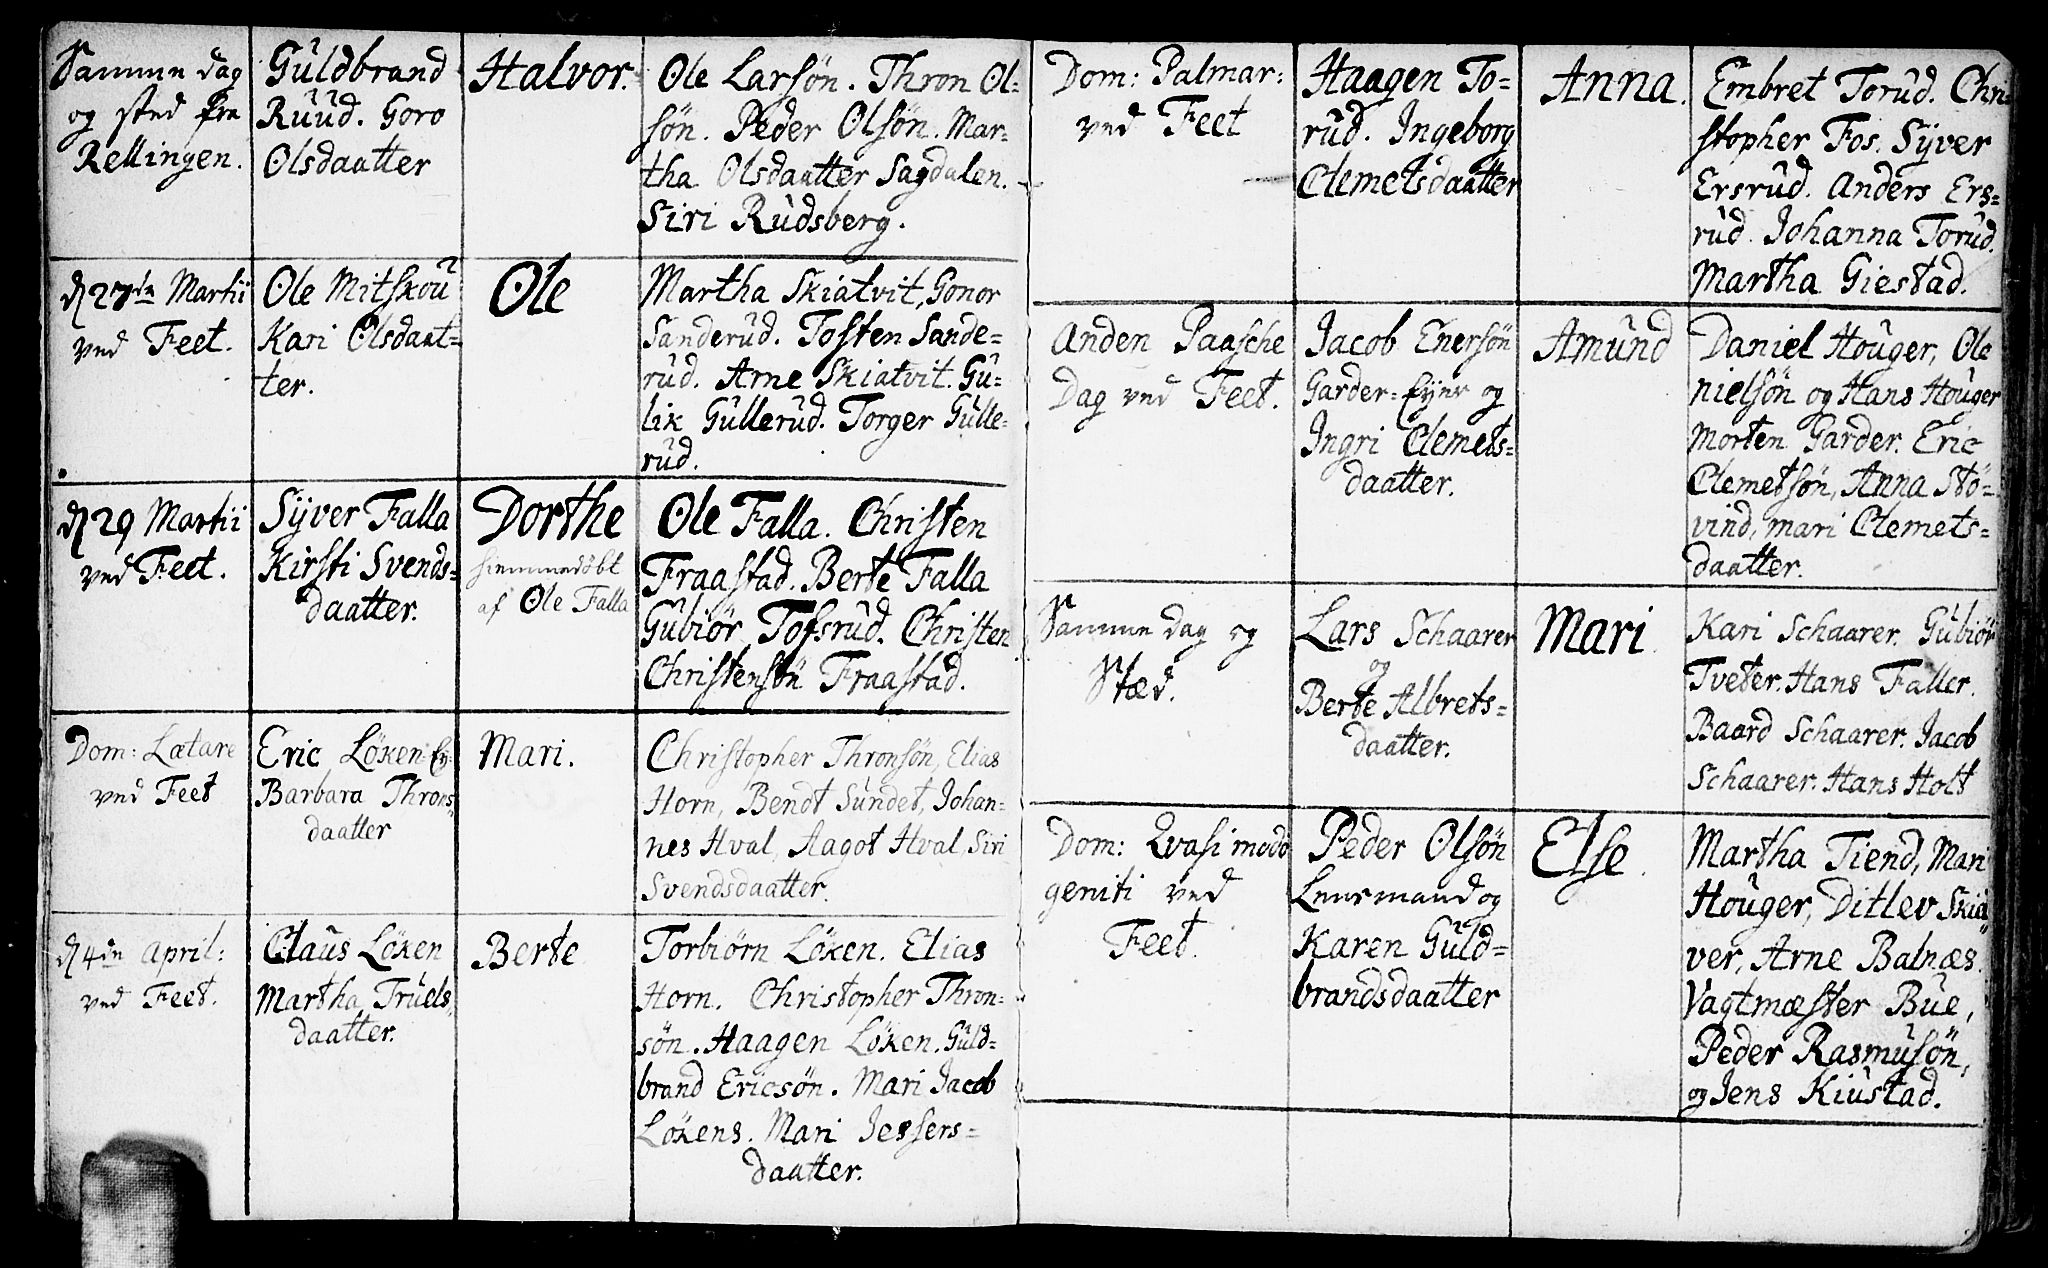 Samme dag
og sted fra
Rellingen.
Guldbrand
Ruud. Goro
Olsdaatter
Halvor.
Ole Larsön. Thron Ol-
sön. Peder Olsön. Mar-
tha Olsdaatter Sagdalen.
Siri Rudsberg.
d 27de Martii
ved Feet.
Ole Mitskou
Kari Olsdaat-
ter.
Ole
Martha Skiatvit, Gonor
Sanderud. Tosten Sande-
rud. Arne Skiatvit. Gu-
lik Gullerud. Torger Gulle-
rud.
d 29 Martii
ved Feet.
Syver Falla
Kirsti Svends-
daatter.
Dorthe
hiemmedöbt
af Ole Falla
Ole Falla. Christen
Fraastad. Berte Falla
Gubiör Tofsrud. Christen
Christensön Fraastad.
Dom: Lætare
ved Feet
Eric Löken Ey-
Barbara Throns-
daatter
Mari.
Christopher Thronsön, Elias
Horn, Bendt Sundet, Johan-
nes Hval, Aagot Hval, Siri
Svendsdaatter.
d 4de April:
ved Feet.
Claus Löken
Martha Truels
daatter.
Berte
Torbiörn Löken. Elias
Horn. Christopher Thron-
sön. Haagen Löken. Guld-
brand Ericsön. Mari Jacob
Lökens. Mari Jessers-
daatter.
Dom: Palmar:
ved Feet
Haagen To-
rud. Ingeborg
Clemetsdaatter
Anna.
Embret Torud. Chri-
stopher Fos. Syver
Ersrud. Anders Ers-
rud. Johanna Torud.
Martha Giestad.
Anden Paasche
Dag ved Feet.
Jacob Enersön
Garder-Eyer og
Ingri Clemets-
daatter.
Amund
Daniel Houger, Ole
nielsön og Hans Houger
Morten Garder. Eric
Clemetsön, Anna Stö-
vind, mari Clemets-
daatter.
Samme dag og
Stæd.
Lars Schaarer
og
Berte Albrets-
daatter.
Mari.
Kari Schaarer. Gubiör
Tveter. Hans Faller.
Baard Schaarer. Jacob
Schaarer. Hans Holt
Dom: Qvasi modo
geniti ved
Feet.
Peder Olsön
Lensmand og
Karen Guld-
brandsdaatter
Else.
Martha Tiend, Mari
Houger, Ditlev Skia-
ver, Arne Balnæs.
Vagtmæster Bue,
Peder Rasmusön,
og Jens Kiustad.